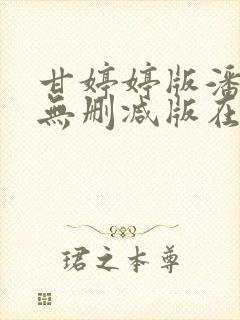 甘婷婷版潘
無删减版在
珺之本尊